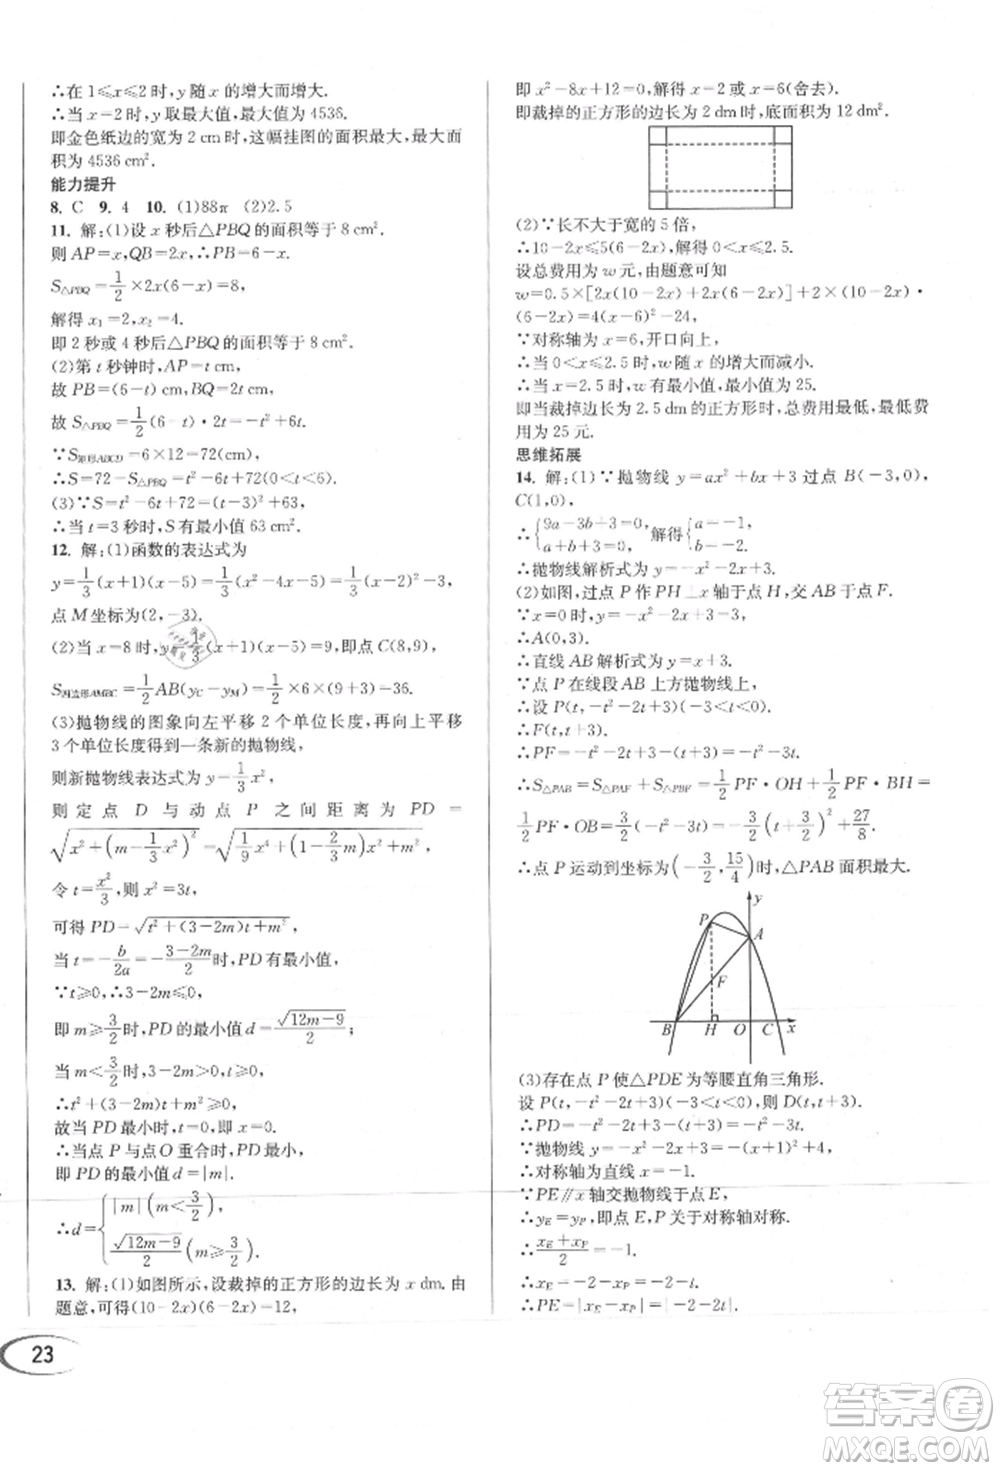 ∴在1⩽x⩽2时,y随x的增大而增大.
∴当x=2时,y取最大值,最大值为4536.
即金色纸边的宽为2 cm时,这幅挂图的面积最大,最大面
积为4536 cm².
能力提升
8. C 9. 4 10. (1)88π (2)2.5
11. 解:(1)设x秒后△PBQ的面积等于8 cm².
则AP=x,QB=2x,∴PB=6-x.
S△PBQ=1/2×2x(6-x)=8,
解得x₁=2,x₂=4.
即2秒或4秒后△PBQ的面积等于8 cm².
(2)第t秒钟时,AP=t cm,
故PB=(6-t) cm,BQ=2t cm,
故S△PBQ=1/2(6-t)·2t=-t²+6t.
∵S矩形ABCD=6×12=72(cm²).
∴S=72-S△PBQ=t²-6t+72(0<t<6).
(3)∵S=t²-6t+72=(t-3)²+63,
∴当t=3秒时,S有最小值63 cm².
12. 解:(1)函数的表达式为
y=1/3(x+1)(x-5)=1/3(x²-4x-5)=1/3x²-4/3x-5/3,
点M坐标为(2,-3).
(2)当x=8时,y=1/3(x+1)(x-5)=9,即点C(8,9).
S四边形AMBC=1/2AB(yC-yM)=1/2×6×(9+3)=36.
(3)抛物线的图象向左平移2个单位长度,再向上平移
3个单位长度得到一条新的抛物线,
则新抛物线表达式为y=1/3x²,
则定点D与动点P之间距离为PD=
√(x²+(m-1/3x²)²)=√(1/9x⁴+(1-2/3m)x²+m²).
令t=x²/3,则x²=3t,
可得PD=√(t²+(3-2m)t+m²),
当t=-b/2a=-(3-2m)/2时,PD有最小值.
∵t⩾0,∴3-2m⩽0,
即m⩾3/2时,PD的最小值d=√(12m-9)/2;
当m<3/2时,3-2m>0,t⩾0,
∴t²+(3-2m)t⩾0,
故当PD最小时,t=0,即x=0.
∴当点P与点O重合时,PD最小,
即PD的最小值d=|m|.
∴d={|m|(m<3/2),
√(12m-9)/2(m⩾3/2).
13. 解:(1)如图所示,设裁掉的正方形的边长为x dm.由
题意,可得(10-2x)(6-2x)=12,
即x²-8x+12=0,解得x=2或x=6(舍去).
即裁掉的正方形的边长为2 dm时,底面积为12 dm².
(2)∵长不大于宽的5倍,
∴10-2x⩽5(6-2x),解得0<x⩽2.5.
设总费用为w元,由题意可知
w=0.5×[2x(10-2x)+2x(6-2x)]+2×(10-2x)·
(6-2x)=4x²-48x+120=4(x-6)²-24,
∵对称轴为x=6,开口向上,
∴当0<x⩽2.5时,w随x的增大而减小.
∴当x=2.5时,w有最小值,最小值为25.
即当裁掉边长为2.5 dm的正方形时,总费用最低,最低费
用为25元.
思维拓展
14. 解:(1)∵抛物线y=ax²+bx+3过点B(-3,0),
C(1,0),
∴{9a-3b+3=0,a+b+3=0,解得{a=-1,b=-2.
∴抛物线解析式为y=-x²-2x+3.
(2)如图,过点P作PH⊥x轴于点H,交AB于点F.
∵x=0时,y=-x²-2x+3=3,
∴A(0,3).
∴直线AB解析式为y=x+3.
∵点P在线段AB上方抛物线上,
∴设P(t,-t²-2t+3)(-3<t<0).
∴F(t,t+3).
∴PF=-t²-2t+3-(t+3)=-t²-3t.
∴S△PAB=S△PAF+S△PBF=1/2PF·OH+1/2PF·BH=
1/2PF·OB=3/2(-t²-3t)=-3/2(t+3/2)²+27/8.
∴点P运动到坐标为(-3/2,15/4)时,△PAB面积最大.
y
P
A
F
B H O C x
(3)存在点P使△PDE为等腰直角三角形.
设P(t,-t²-2t+3)(-3<t<0),则D(t,t+3).
∴PD=-t²-2t+3-(t+3)=-t²-3t.
∵抛物线y=-x²-2x+3=-(x+1)²+4,
∴对称轴为直线x=-1.
∵PE∥x轴交抛物线于点E,
∴yE=yP,即点E,P关于对称轴对称.
∴(xE+xP)/2=-1.
∴xE=-2-xP=-2-t.
∴PE=|xE-xP|=|-2-2t|.
23
答案圈
MXQE.COM